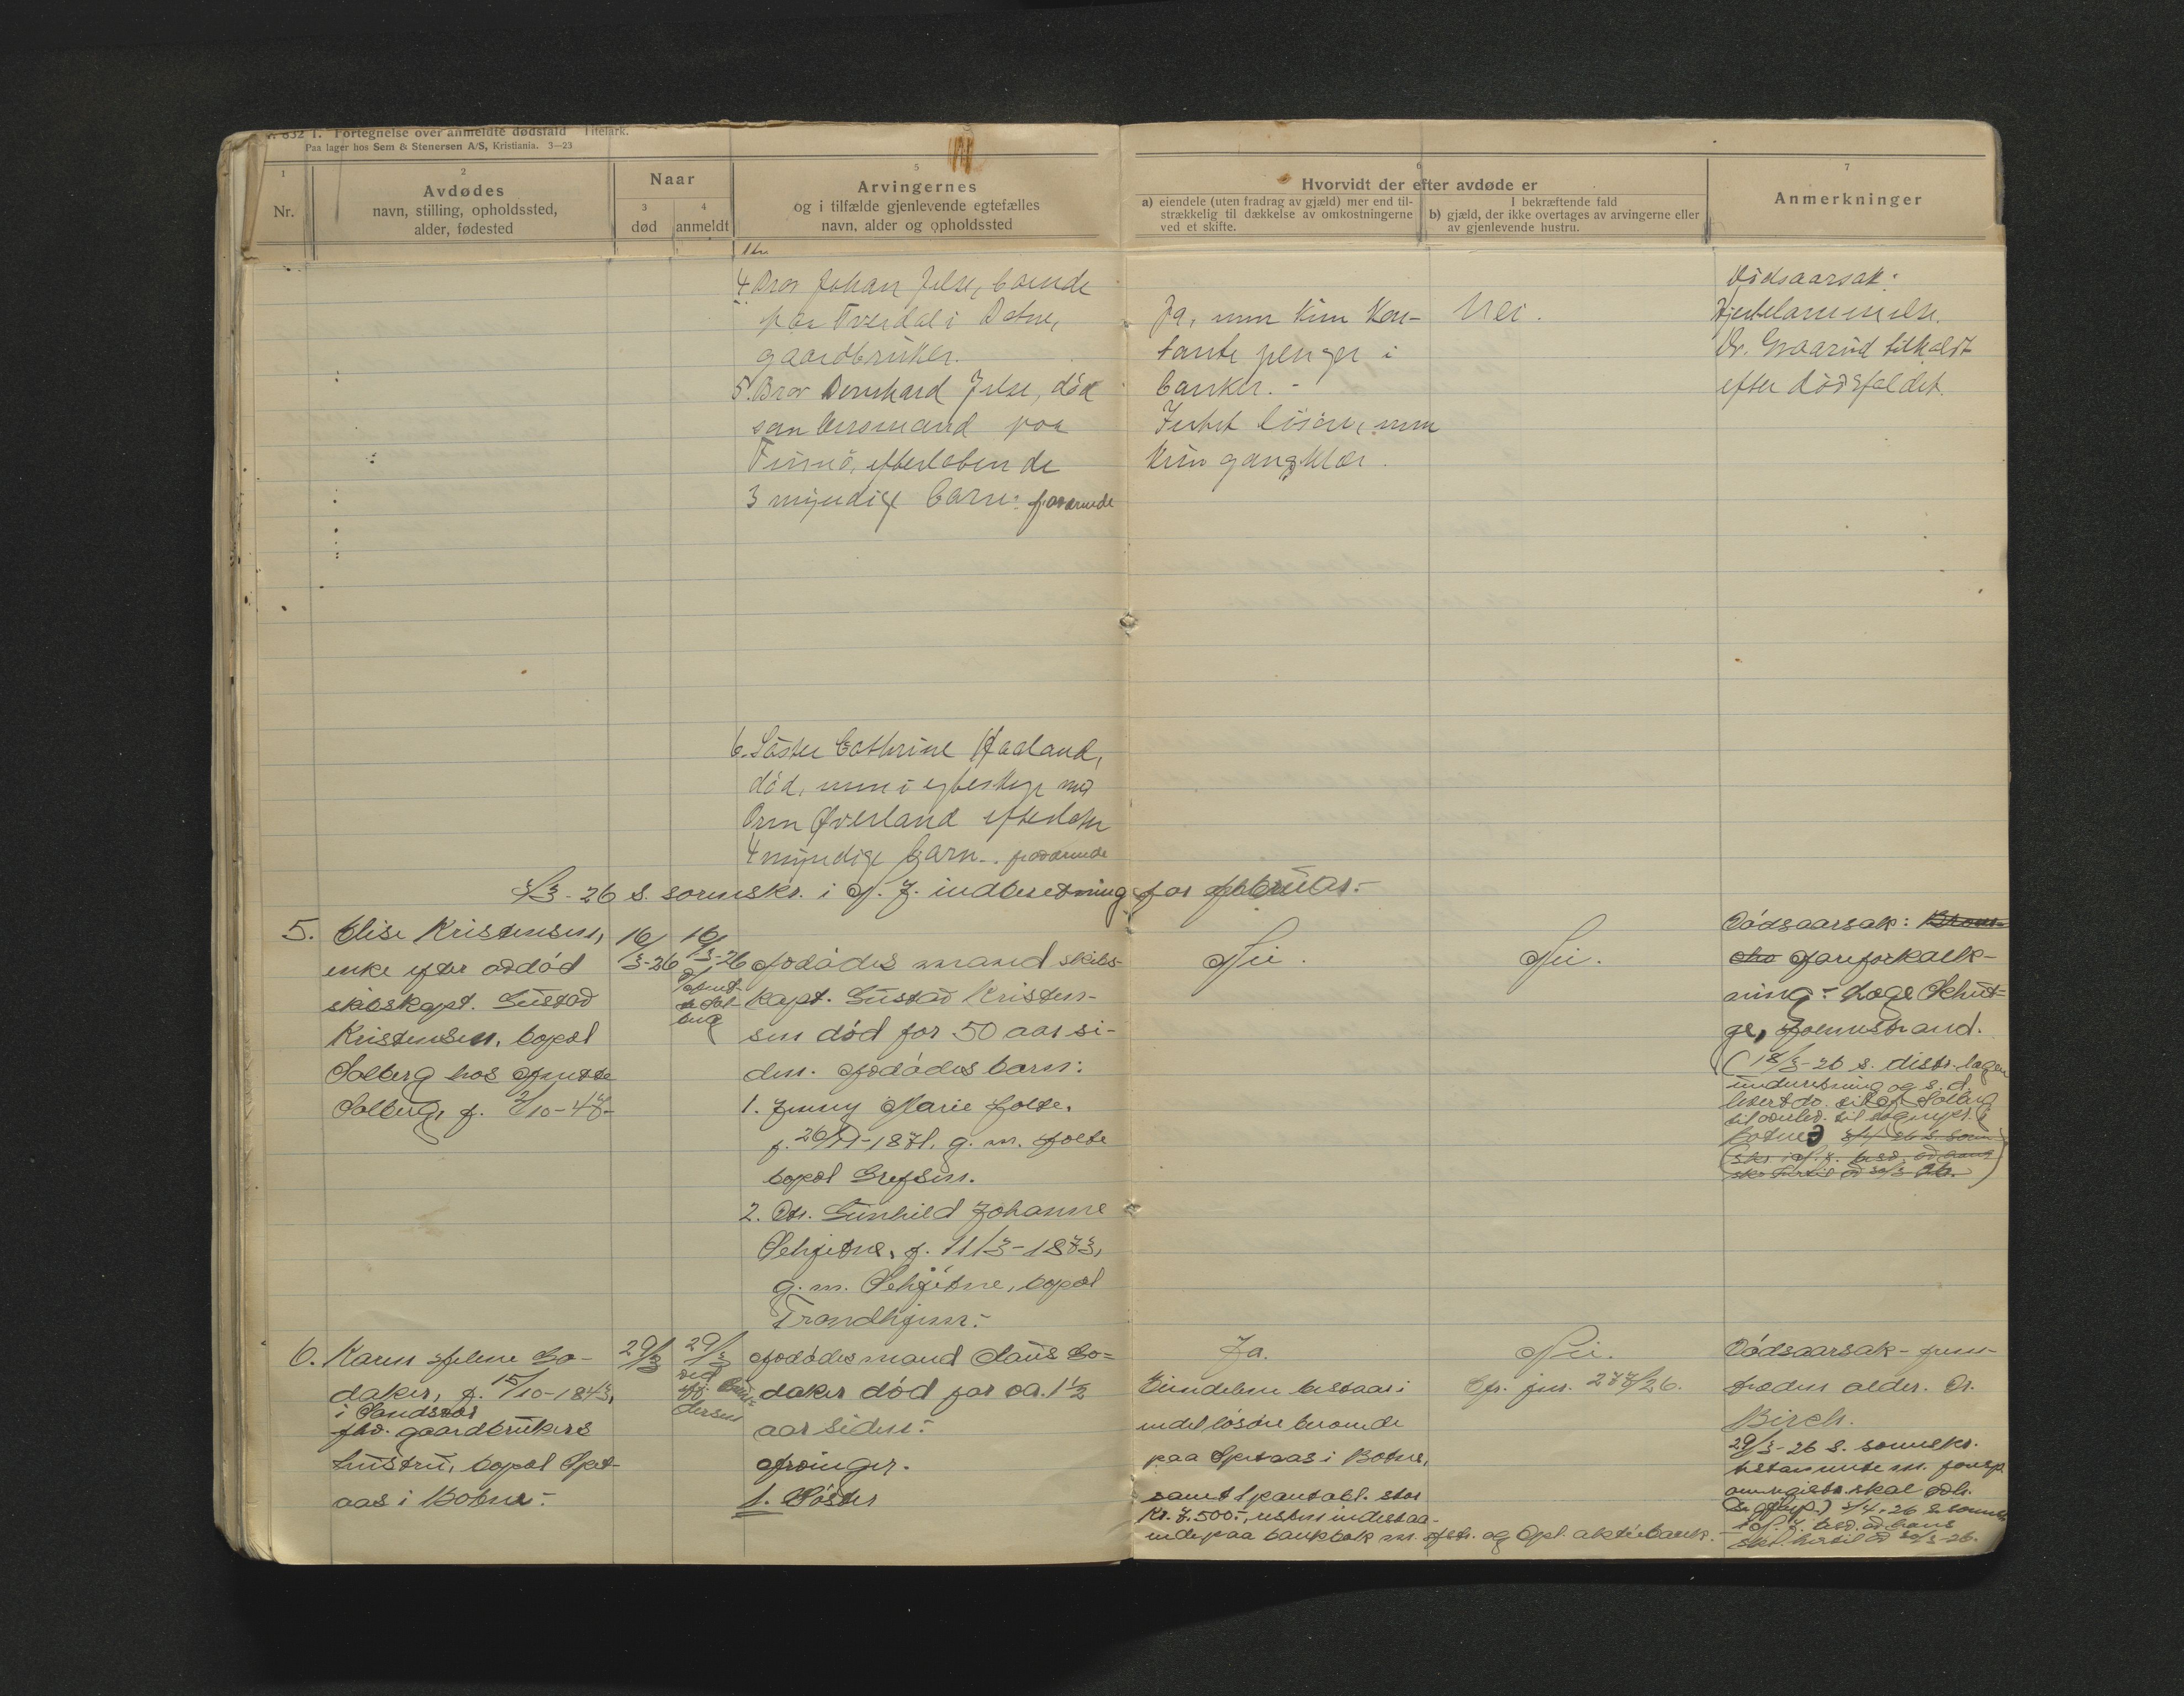 832 1. Fortegnelse over anmeldte dødsfald Titelark.
Paa lager hos Sem & Stenersen A/S, Kristiania. 3—23
1
Nr.
2
Avdødes
navn, stilling, opholdssted,
alder, fødested
Naar
3
død
4
anmeldt
5
Arvingernes
og i tilfælde gjenlevende egtefælles
navn, alder og opholdssted
6
Hvorvidt der efter avdøde er
a) eiendele (uten fradrag av gjæld) mer end til-
strækkelig til dækkelse av omkostningerne
ved et skifte.
I bekræftende fald
b) gjæld, der ikke overtages av arvingerne eller
av gjenlevende hustru.
7
Anmerkninger
4 Bror Johan Jelse, boende
paa Tveidal i Botne,
gaardbruker.
5. Bror Bernhard Jelse, død
som lensmand paa
3 myndige barn:
Ja, men kun kon-
tante penger i
banker.-
løsøre, men
kun gangklær.
Nei.
Dødsaarsak:
Hjertelammelse.
Dr. Graarud tilkaldt
efter dødsfaldet.
6. Søster Cathrine Haaland,
død, men i egteskap med
Orm Øverland efterlater
4 myndige barn.
3/3-26 s. sorenskr. i N. J. indberetning for februar.-
5. Elise Kristensen,
enke efter avdød
skibskapt. Gustav
Kristensen, bopæl
Solberg hos
Solberg, f. 2/10-47-
16/3-26
16/3-26
Avdødes mand skibs-
kapt. Gustav Kristen-
sen død for 50 aar si-
den. Avdødes barn:
1. Jenny Marie Holte,
g. m. Holte
bopæl Grefsen.
2. Dtr. Gunhild Johanne
Schjetne, f. 11/3-1873,
g. m. Schjetne, bopæl
Trondhjem.-
Nei.
Nei.
Dødsaarsak:
Aareforkalk-
ning.- Læge
Holmestrand.
(18/3-26 s. distr.lægen
underretning og s. d.
6. Karen Helene Bo-
daker, f. 15/10-1843,
i Sandsvær
fhv. gaardbrukers
hustru, bopæl
aas i Botne.-
29/3
29/3
ved
Avdødes mand Claus Bo-
daker død for ca. 1½
aar siden.-
Arvinger.
1. Søster
Ja.
Eiendelene bestaar i
endel løsøre beroende
paa i Botne,
samt 1 pantobl. stor
Kr. 7.500.-, resten indestaa-
ende paa bankbok m. og Opl. aktiebank.-
Nei.
Cfr. jnr. 277/26.
Dødsaarsak - frem-
skreden alder. Dr.
Birch.
29/3-26 s. sorenskr.